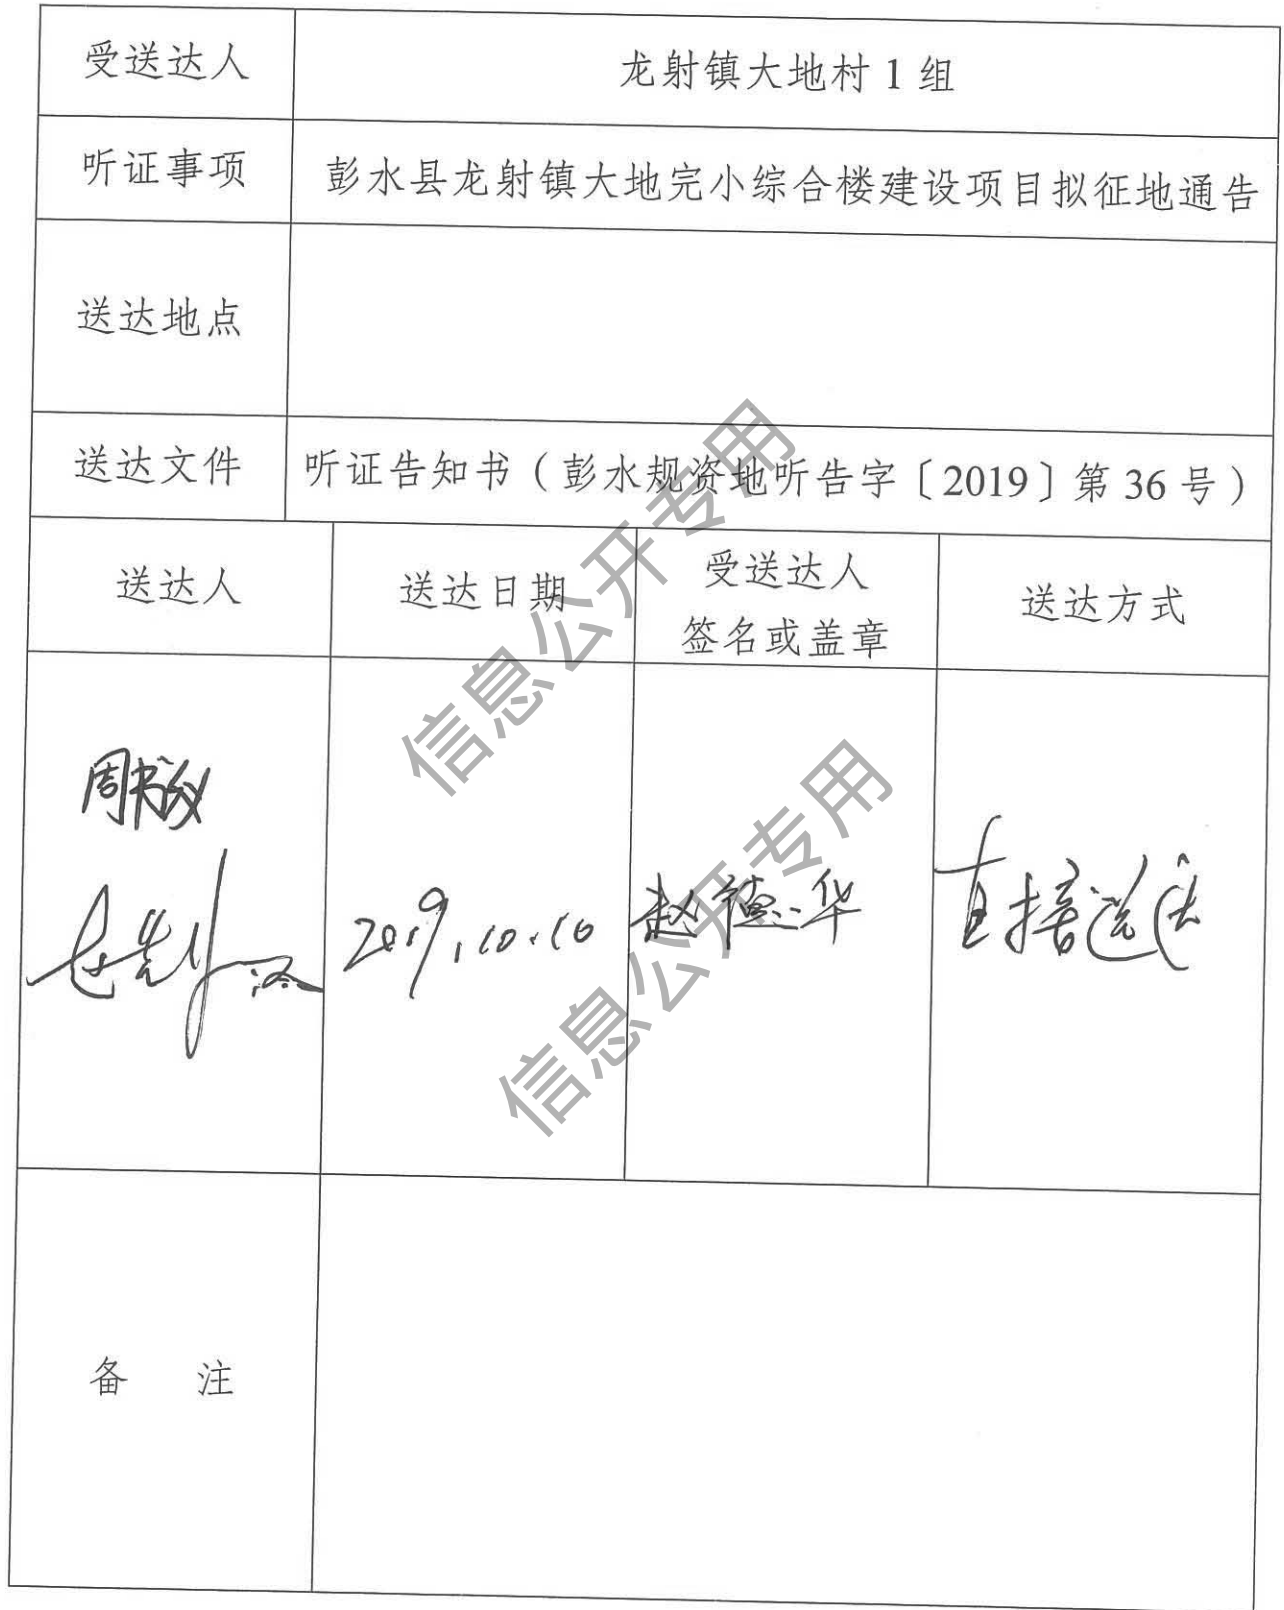 受送达人 龙射镇大地村 1 组
听证事项 彭水县龙射镇大地完小综合楼建设项目拟征地通告
送达地点
送达文件 听证告知书（彭水规资地听告字〔2019〕第 36 号）
送达人 送达日期 受送达人 签名或盖章 送达方式
2019.10.10 赵德华 直接送达
备 注
信息公开专用
信息公开专用